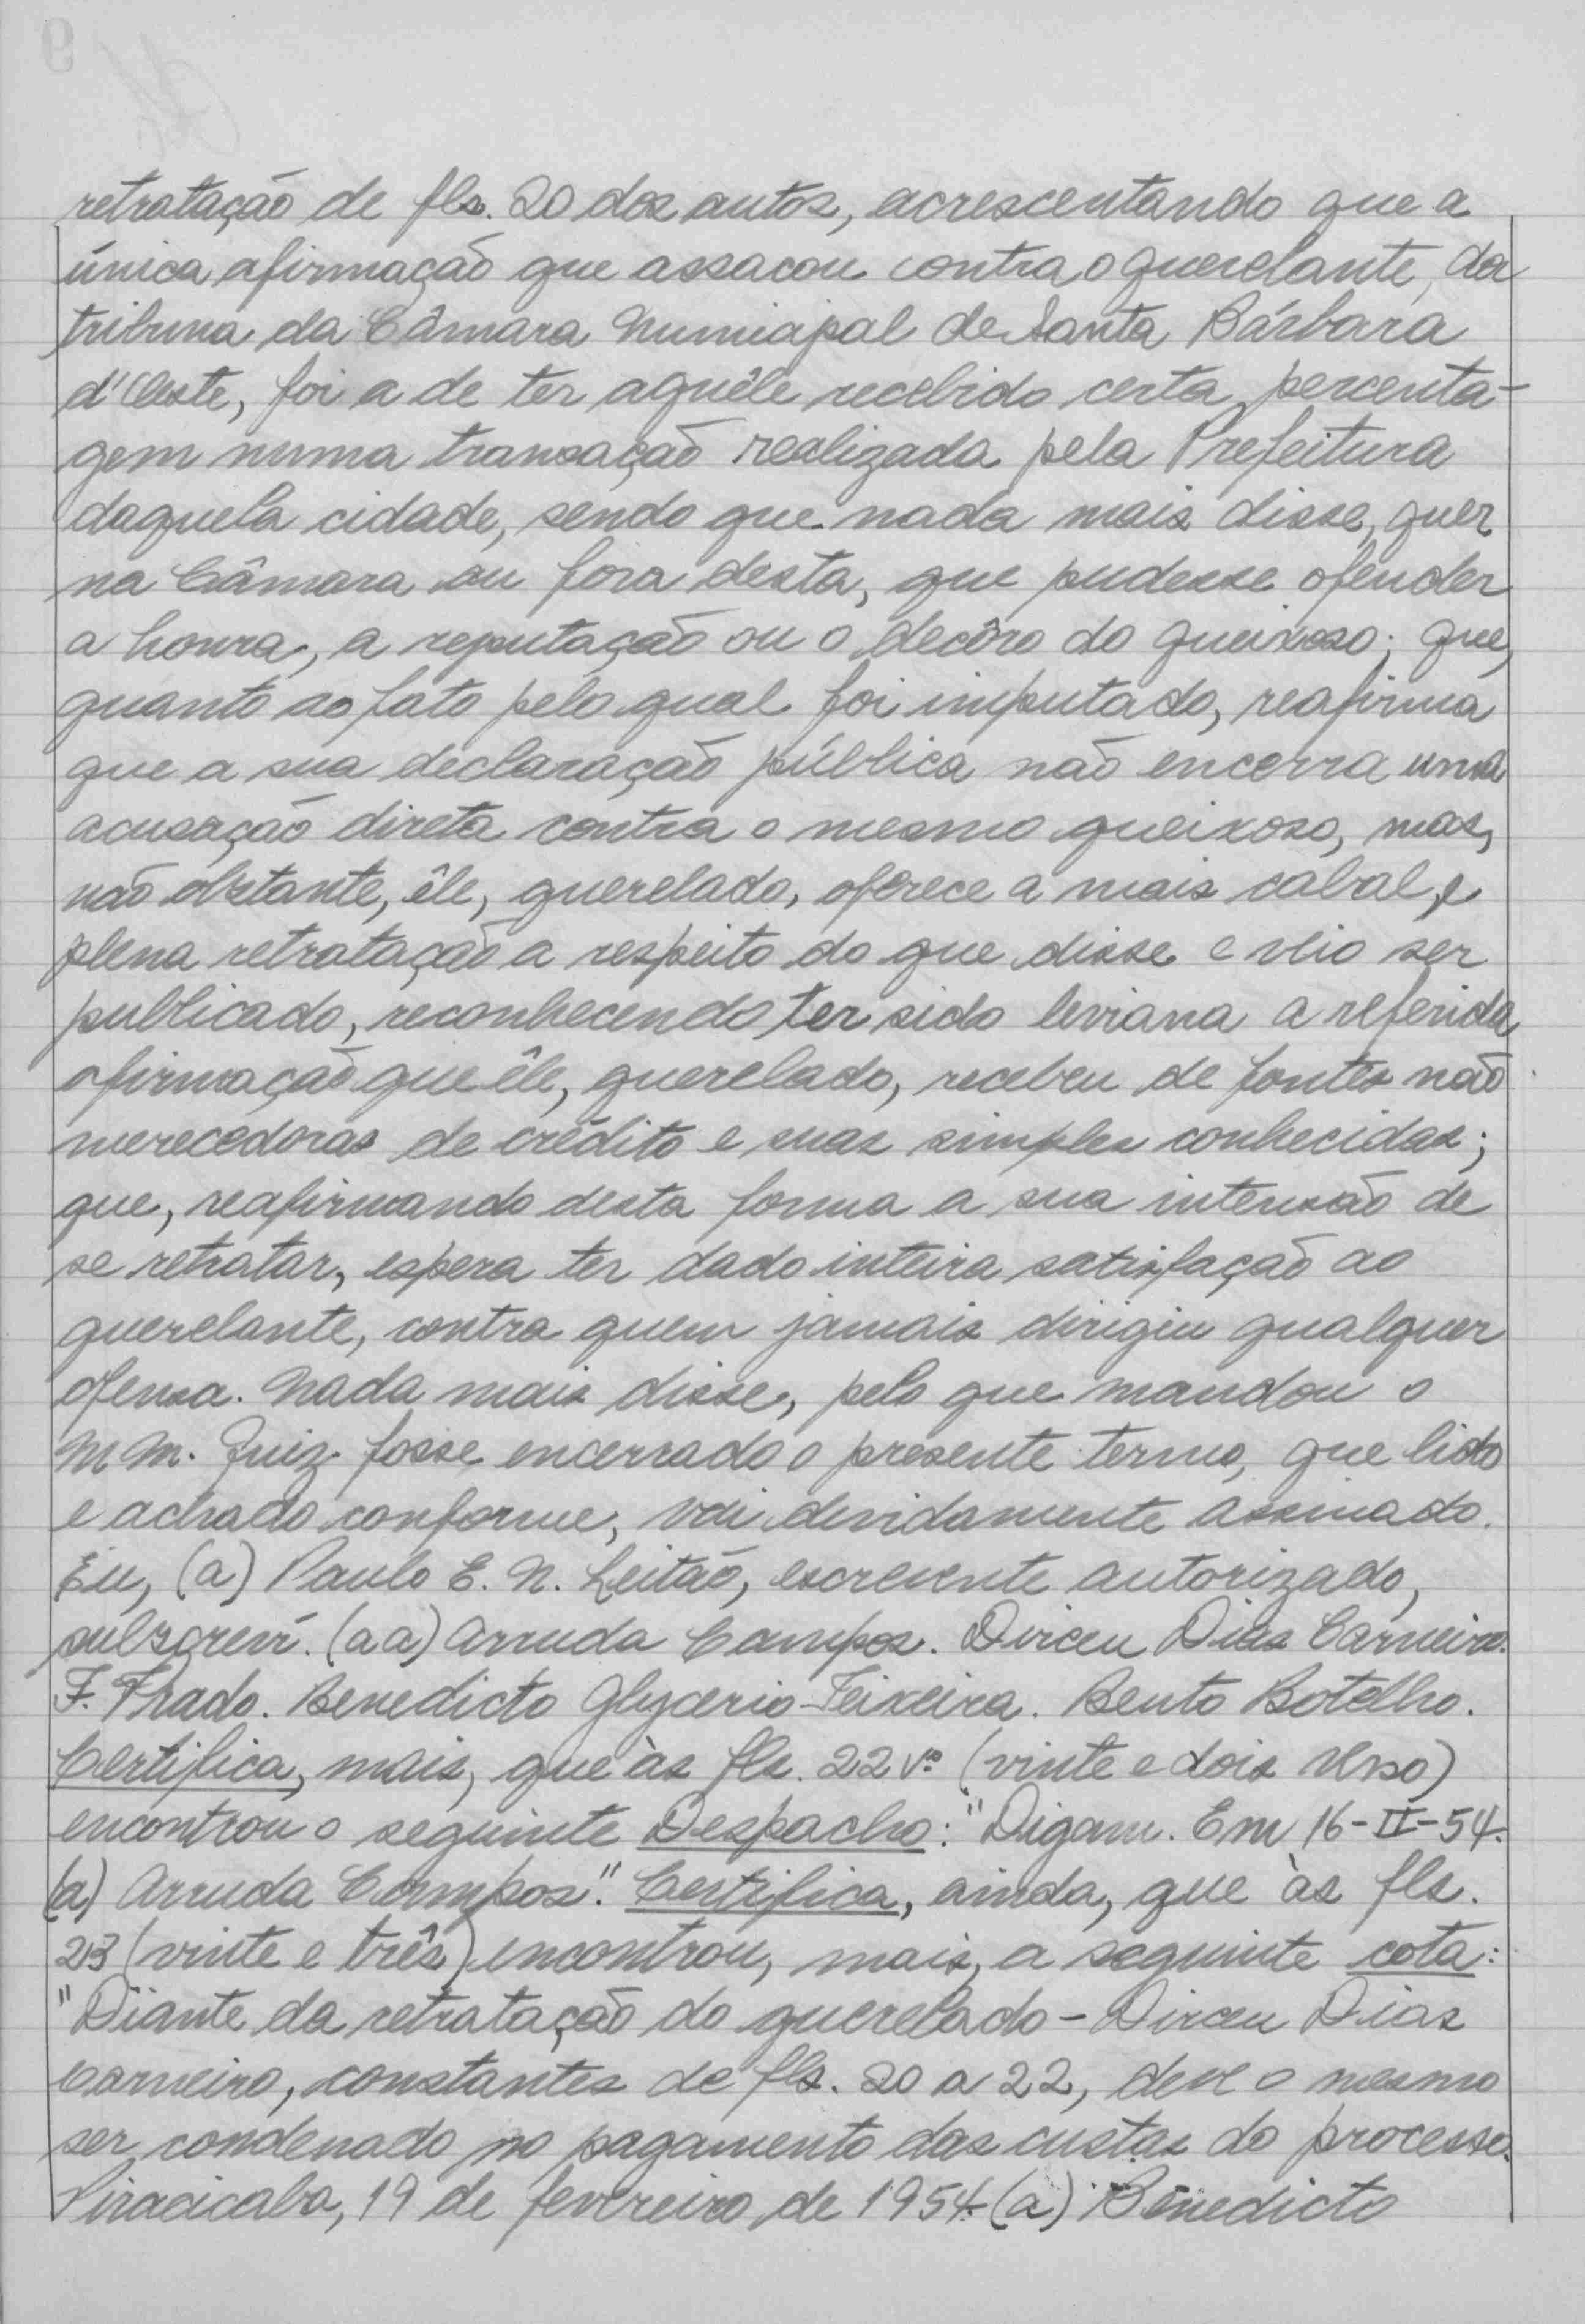 retratação de fls. 20 dos autos, acrescentando que a
única afirmação que assacou contra o querelante, da
tribuna da Câmara Municipal de Santa Bárbara
d'Oeste, foi a de ter aquêle recebido certa percenta-
gem numa transação realizada pela Prefeitura
daquela cidade, sendo que nada mais disse, quer
na Câmara ou fora desta, que pudesse ofender
a honra, a reputação ou o decôro do queixoso; que,
quanto ao fato pelo qual foi imputado, reafirma
que a sua declaração pública não encerra uma
acusação direta contra o mesmo queixoso, mas,
não obstante, êle, querelado, oferece a mais cabal e
plena retratação a respeito do que disse e veio ser
publicado, reconhecendo ter sido leviana a referida
afirmação que êle, querelado, recebeu de fontes não
merecedoras de crédito e suas simples conhecidas;
que, reafirmando desta forma a sua intensão de
se retratar, espera ter dado inteira satisfação ao
querelante, contra quem jamais dirigiu qualquer
ofensa. Nada mais disse, pelo que mandou o
MM. Juiz fosse encerrado o presente termo, que lido
e achado conforme, vai devidamente assinado.
Eu, (a) Paulo E. N. Leitão, escrevente autorizado,
subscreví. (aa) Arruda Campos. Dirceu Dias Carneiro.
F. Prado. Benedicto Glycerio Teixeira. Bento Botelho.
Certifica, mais, que às fls. 22 vº (vinte e dois verso)
encontrou o seguinte Despacho: "Digam. Em 16-II-54.
(a) Arruda Campos". Certifica, ainda, que às fls.
23 (vinte e três) encontrou, mais, a seguinte cota:
"Diante da retratação do querelado - Dirceu Dias
Carneiro, constantes de fls. 20 a 22, deve o mesmo
ser condenado no pagamento das custas do processo.
Piracicaba, 19 de fevereiro de 1954. (a) Benedicto